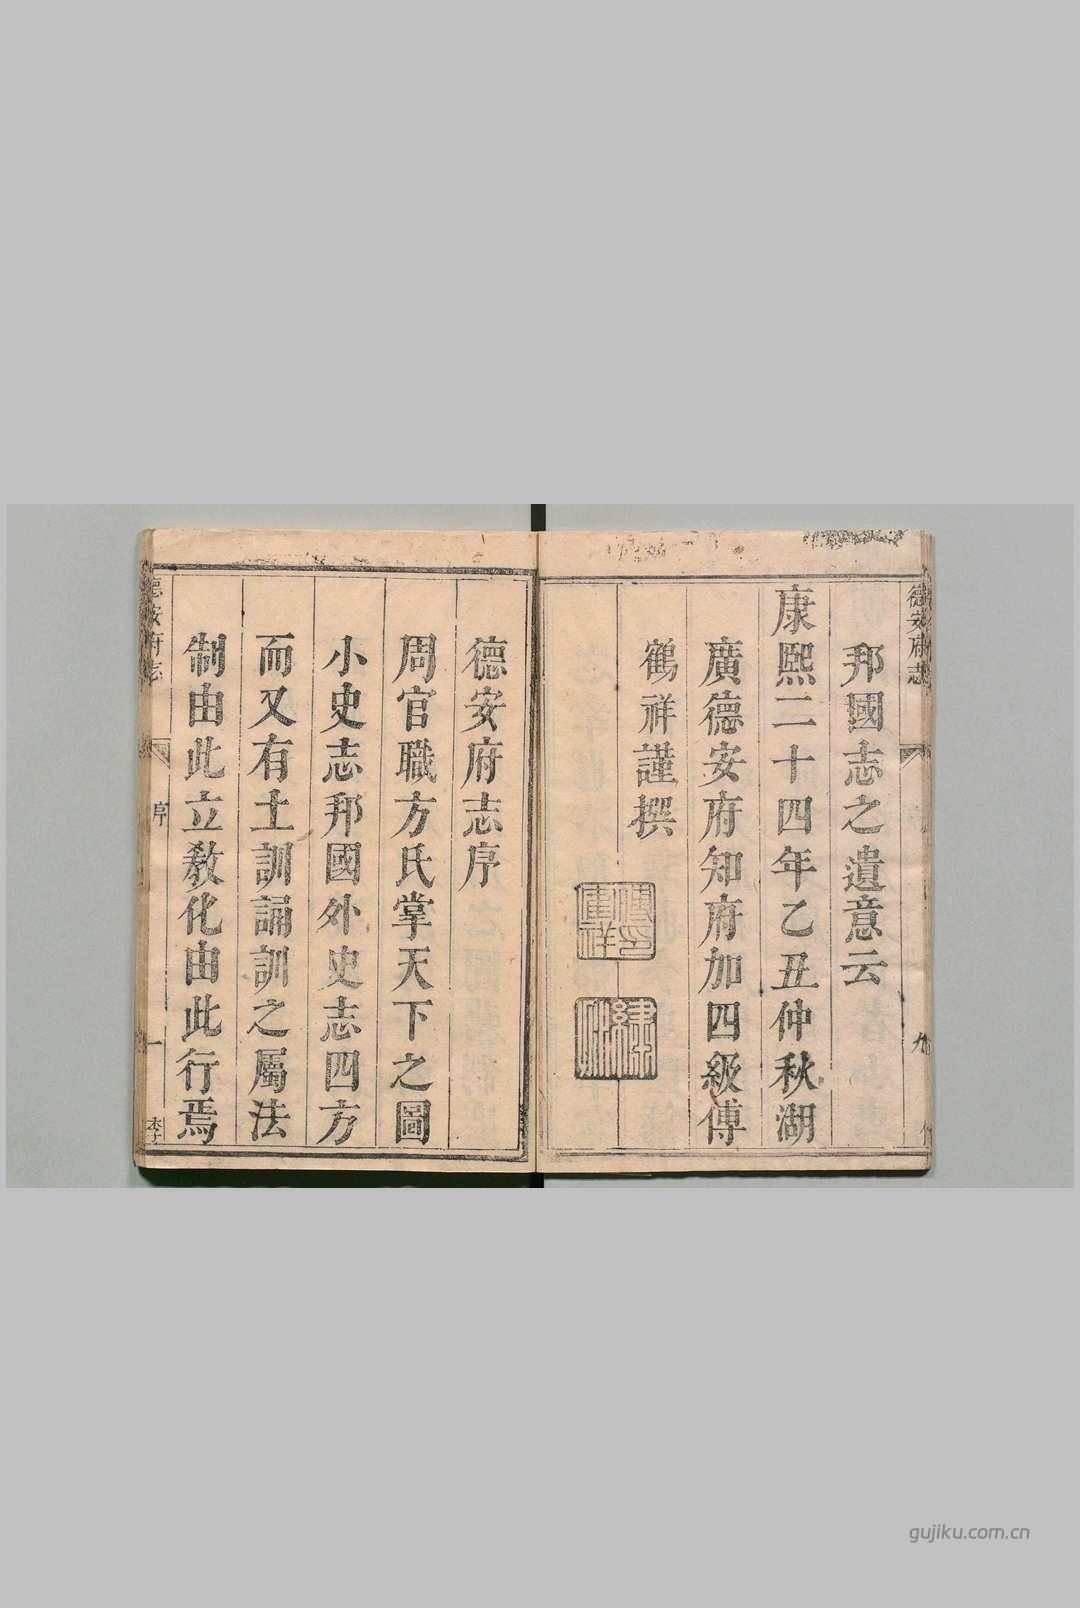 德安府志
九
邦國志之遺意云
康熙二十四年乙丑仲秋湖
廣德安府知府加四級傅
鶴祥謹撰
德安府志序
周官職方氏掌天下之圖
小史志邦國外史志四方
而又有土訓誦訓之屬法
制由此立教化由此行焉
德安府志
序
一
gujiku.com.cn